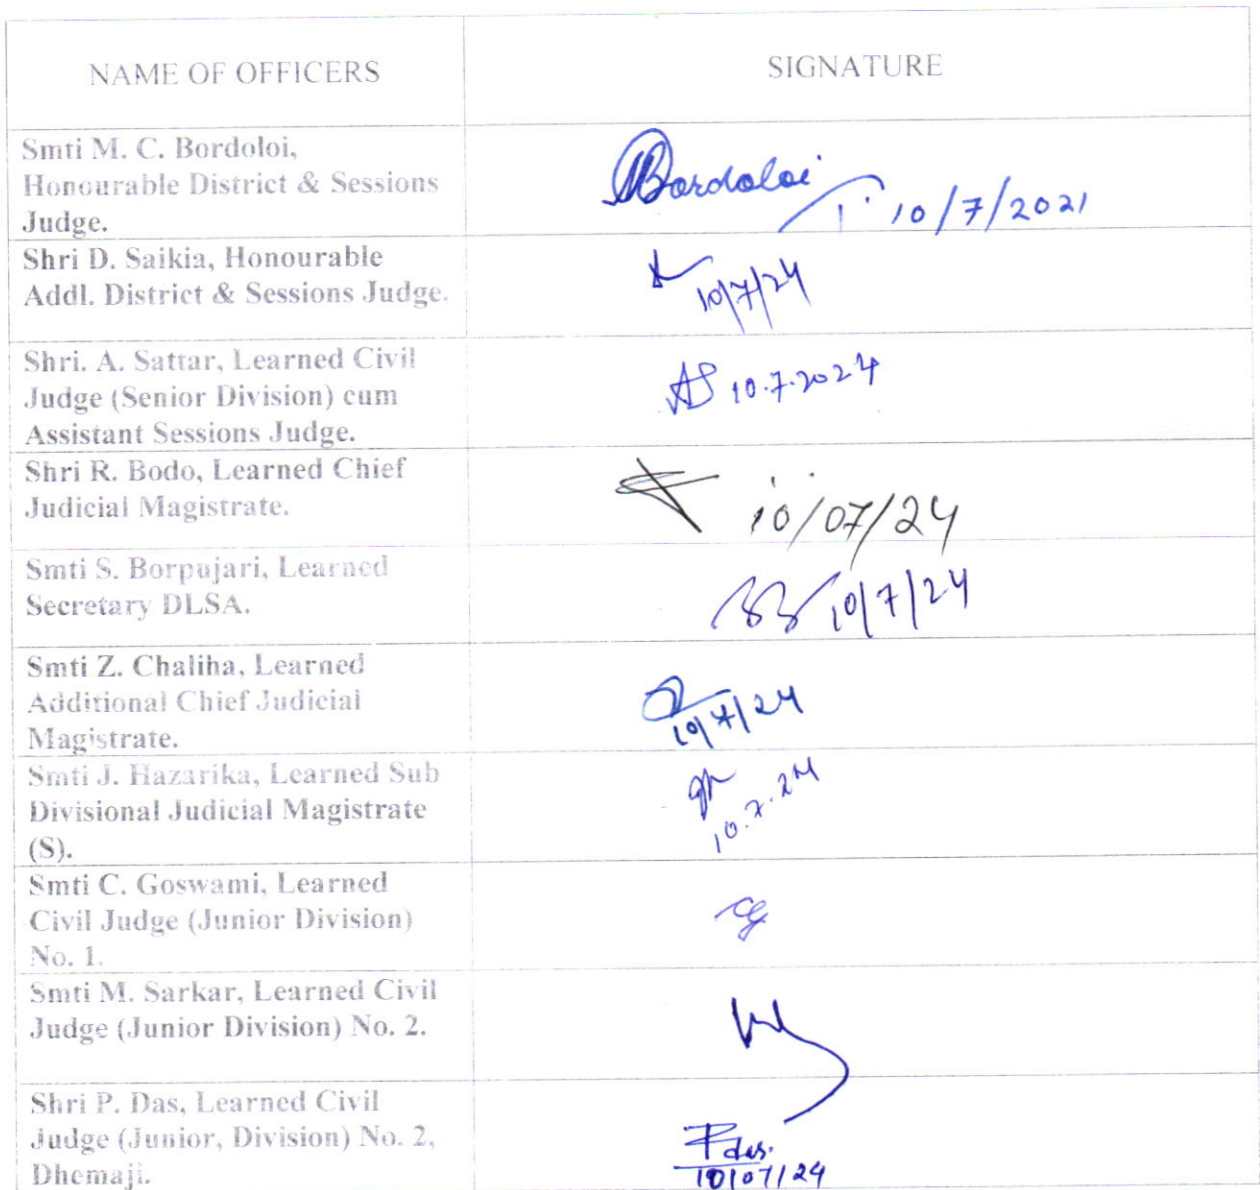 NAME OF OFFICERS
SIGNATURE
Smti M. C. Bordoloi,
Honourable District & Sessions
Judge.
Bordoloi
10/7/2021
Shri D. Saikia, Honourable
Addl. District & Sessions Judge.
10/7/24
Shri. A. Sattar, Learned Civil
Judge (Senior Division) cum
Assistant Sessions Judge.
AS 10.7.2024
Shri R. Bodo, Learned Chief
Judicial Magistrate.
10/07/24
Smti S. Borpujari, Learned
Secretary DLSA.
10/7/24
Smti Z. Chaliha, Learned
Additional Chief Judicial
Magistrate.
10/7/24
Smti J. Hazarika, Learned Sub
Divisional Judicial Magistrate
(S).
10.7.24
Smti C. Goswami, Learned
Civil Judge (Junior Division)
No. 1.
CG
Smti M. Sarkar, Learned Civil
Judge (Junior Division) No. 2.
Shri P. Das, Learned Civil
Judge (Junior, Division) No. 2,
Dhemaji.
P das.
10/07/24